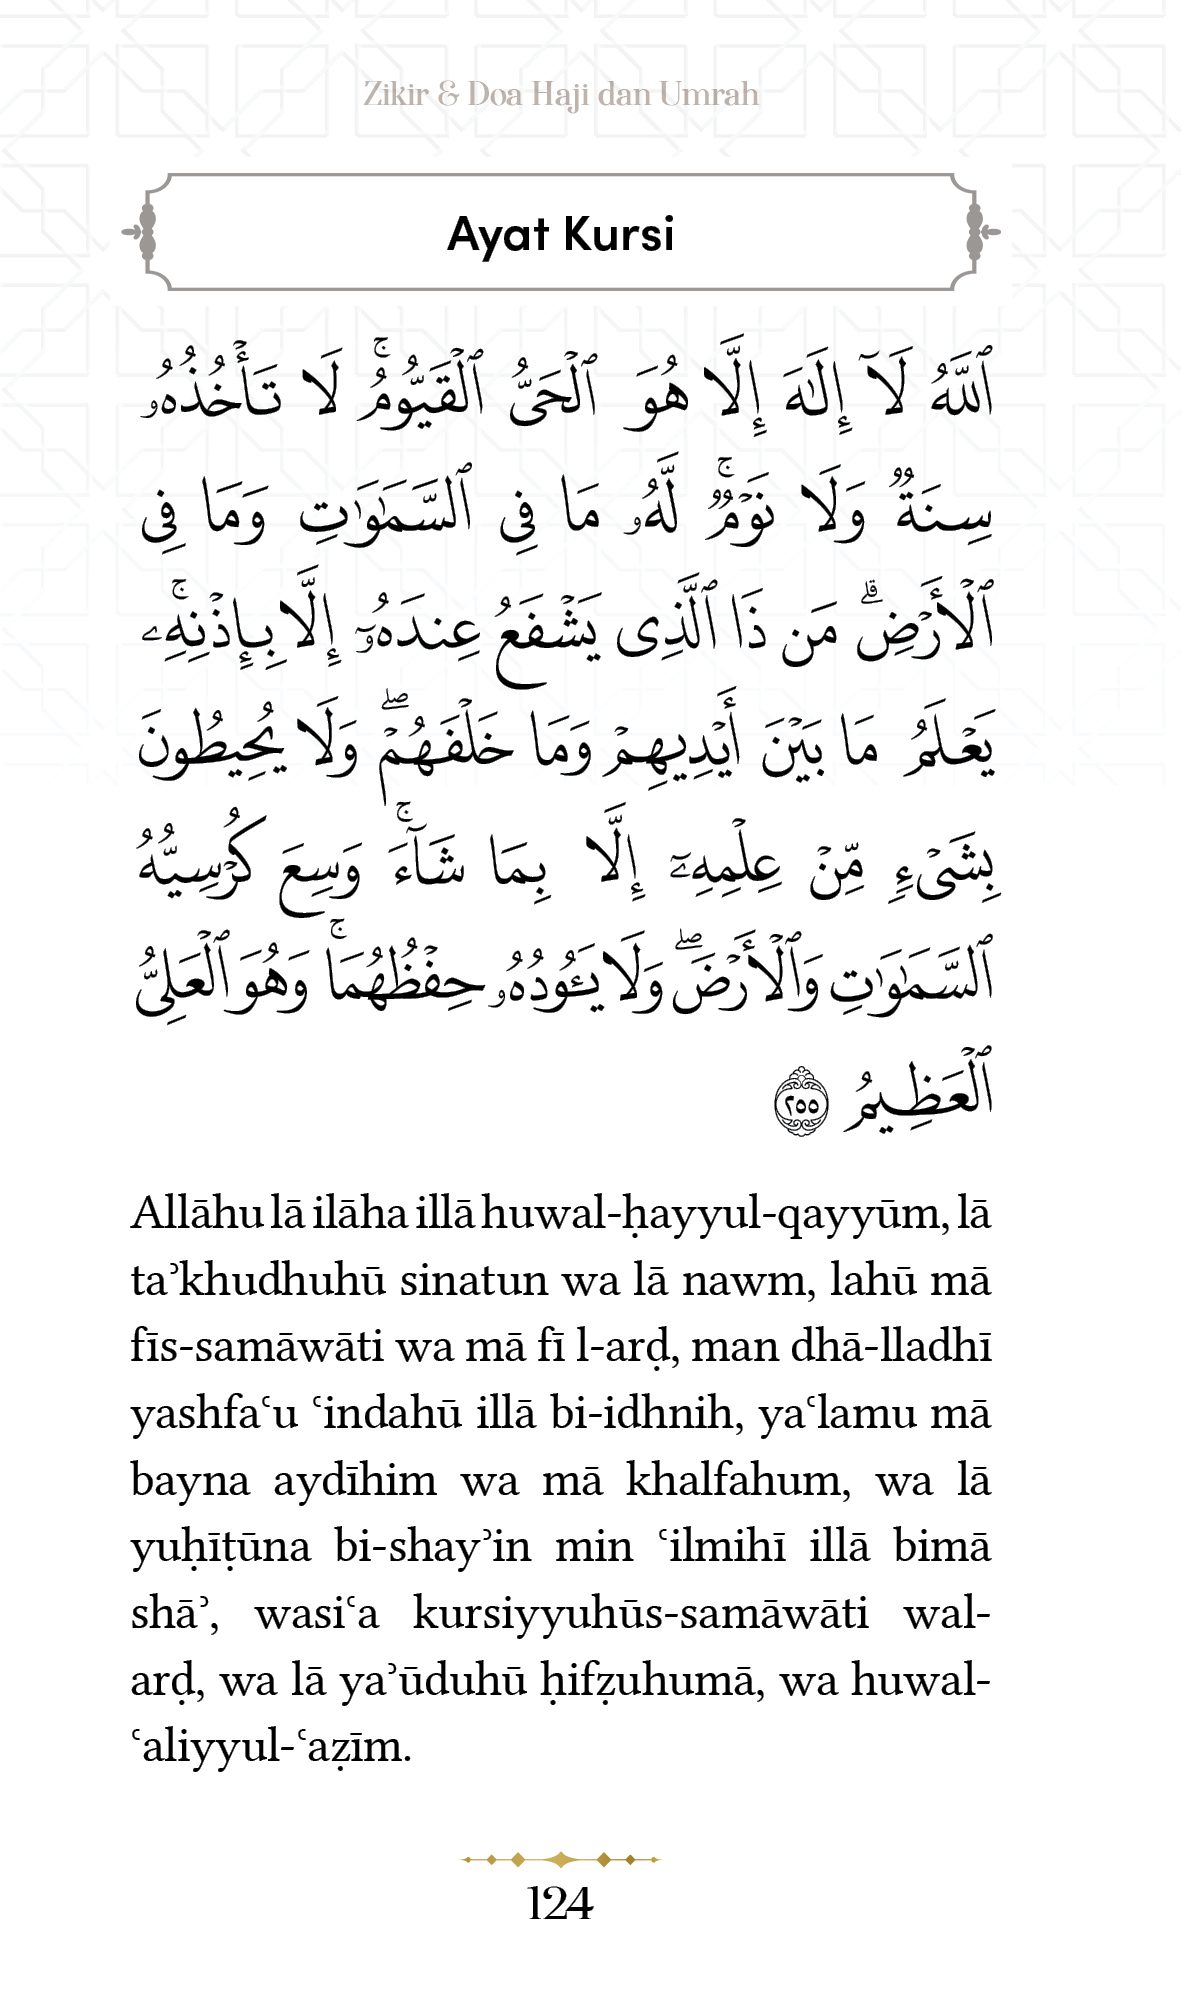 Zikir & Doa Haji dan Umrah
Ayat Kursi
ٱللَّهُ لَآ إِلَـٰهَ إِلَّا هُوَ ٱلْحَىُّ ٱلْقَيُّومُ ۚ لَا تَأْخُذُهُۥ
سِنَةٌ وَلَا نَوْمٌ ۚ لَّهُۥ مَا فِى ٱلسَّمَـٰوَٰتِ وَمَا فِى
ٱلْأَرْضِ ۗ مَن ذَا ٱلَّذِى يَشْفَعُ عِندَهُۥٓ إِلَّا بِإِذْنِهِۦ ۚ
يَعْلَمُ مَا بَيْنَ أَيْدِيهِمْ وَمَا خَلْفَهُمْ ۖ وَلَا يُحِيطُونَ
بِشَىْءٍ مِّنْ عِلْمِهِۦٓ إِلَّا بِمَا شَآءَ ۚ وَسِعَ كُرْسِيُّهُ
ٱلسَّمَـٰوَٰتِ وَٱلْأَرْضَ ۖ وَلَا يَـُٔودُهُۥ حِفْظُهُمَا ۚ وَهُوَ ٱلْعَلِىُّ
ٱلْعَظِيمُ ٢٥٥
Allāhu lā ilāha illā huwal-ḥayyul-qayyūm, lā
taʾkhudhuhū sinatun wa lā nawm, lahū mā
fīs-samāwāti wa mā fī l-arḍ, man dhā-lladhī
yashfaʿu ʿindahū illā bi-idhnih, yaʿlamu mā
bayna aydīhim wa mā khalfahum, wa lā
yuḥīṭūna bi-shayʾin min ʿilmihī illā bimā
shāʾ, wasiʿa kursiyyuhūs-samāwāti wal-
arḍ, wa lā yaʾūduhū ḥifẓuhumā, wa huwal-
ʿaliyyul-ʿaẓīm.
124